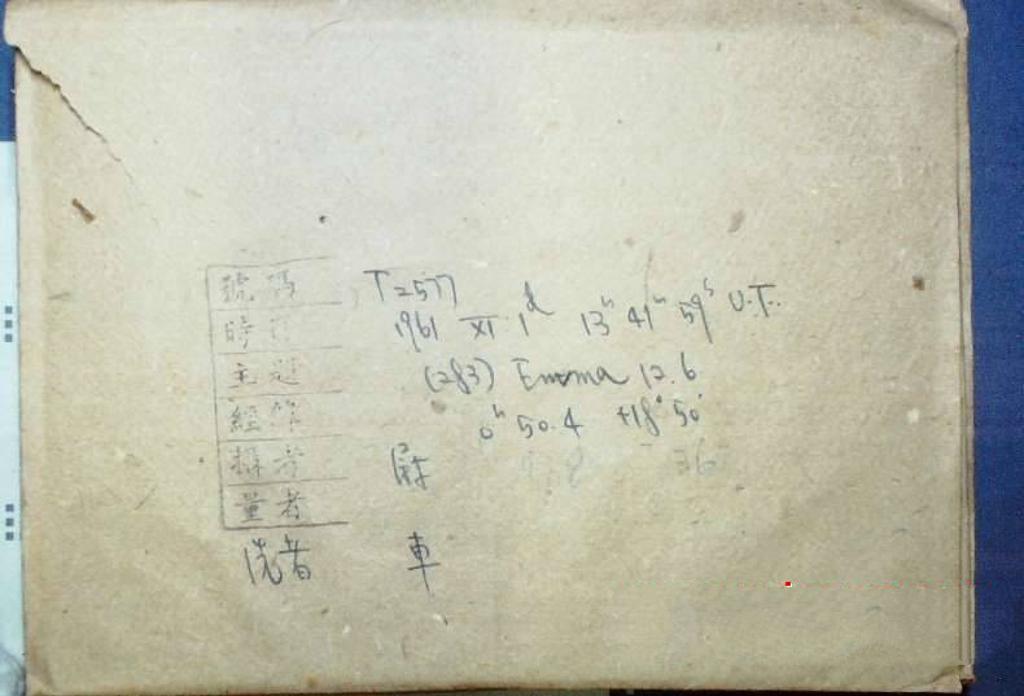 號碼 T2577
時 1961 XI 1d 13h 41m 59s U.T.
主題 (283) Emma 12.6
經 0h 50.4 +18° 50'
攝者
量者
洗者 車